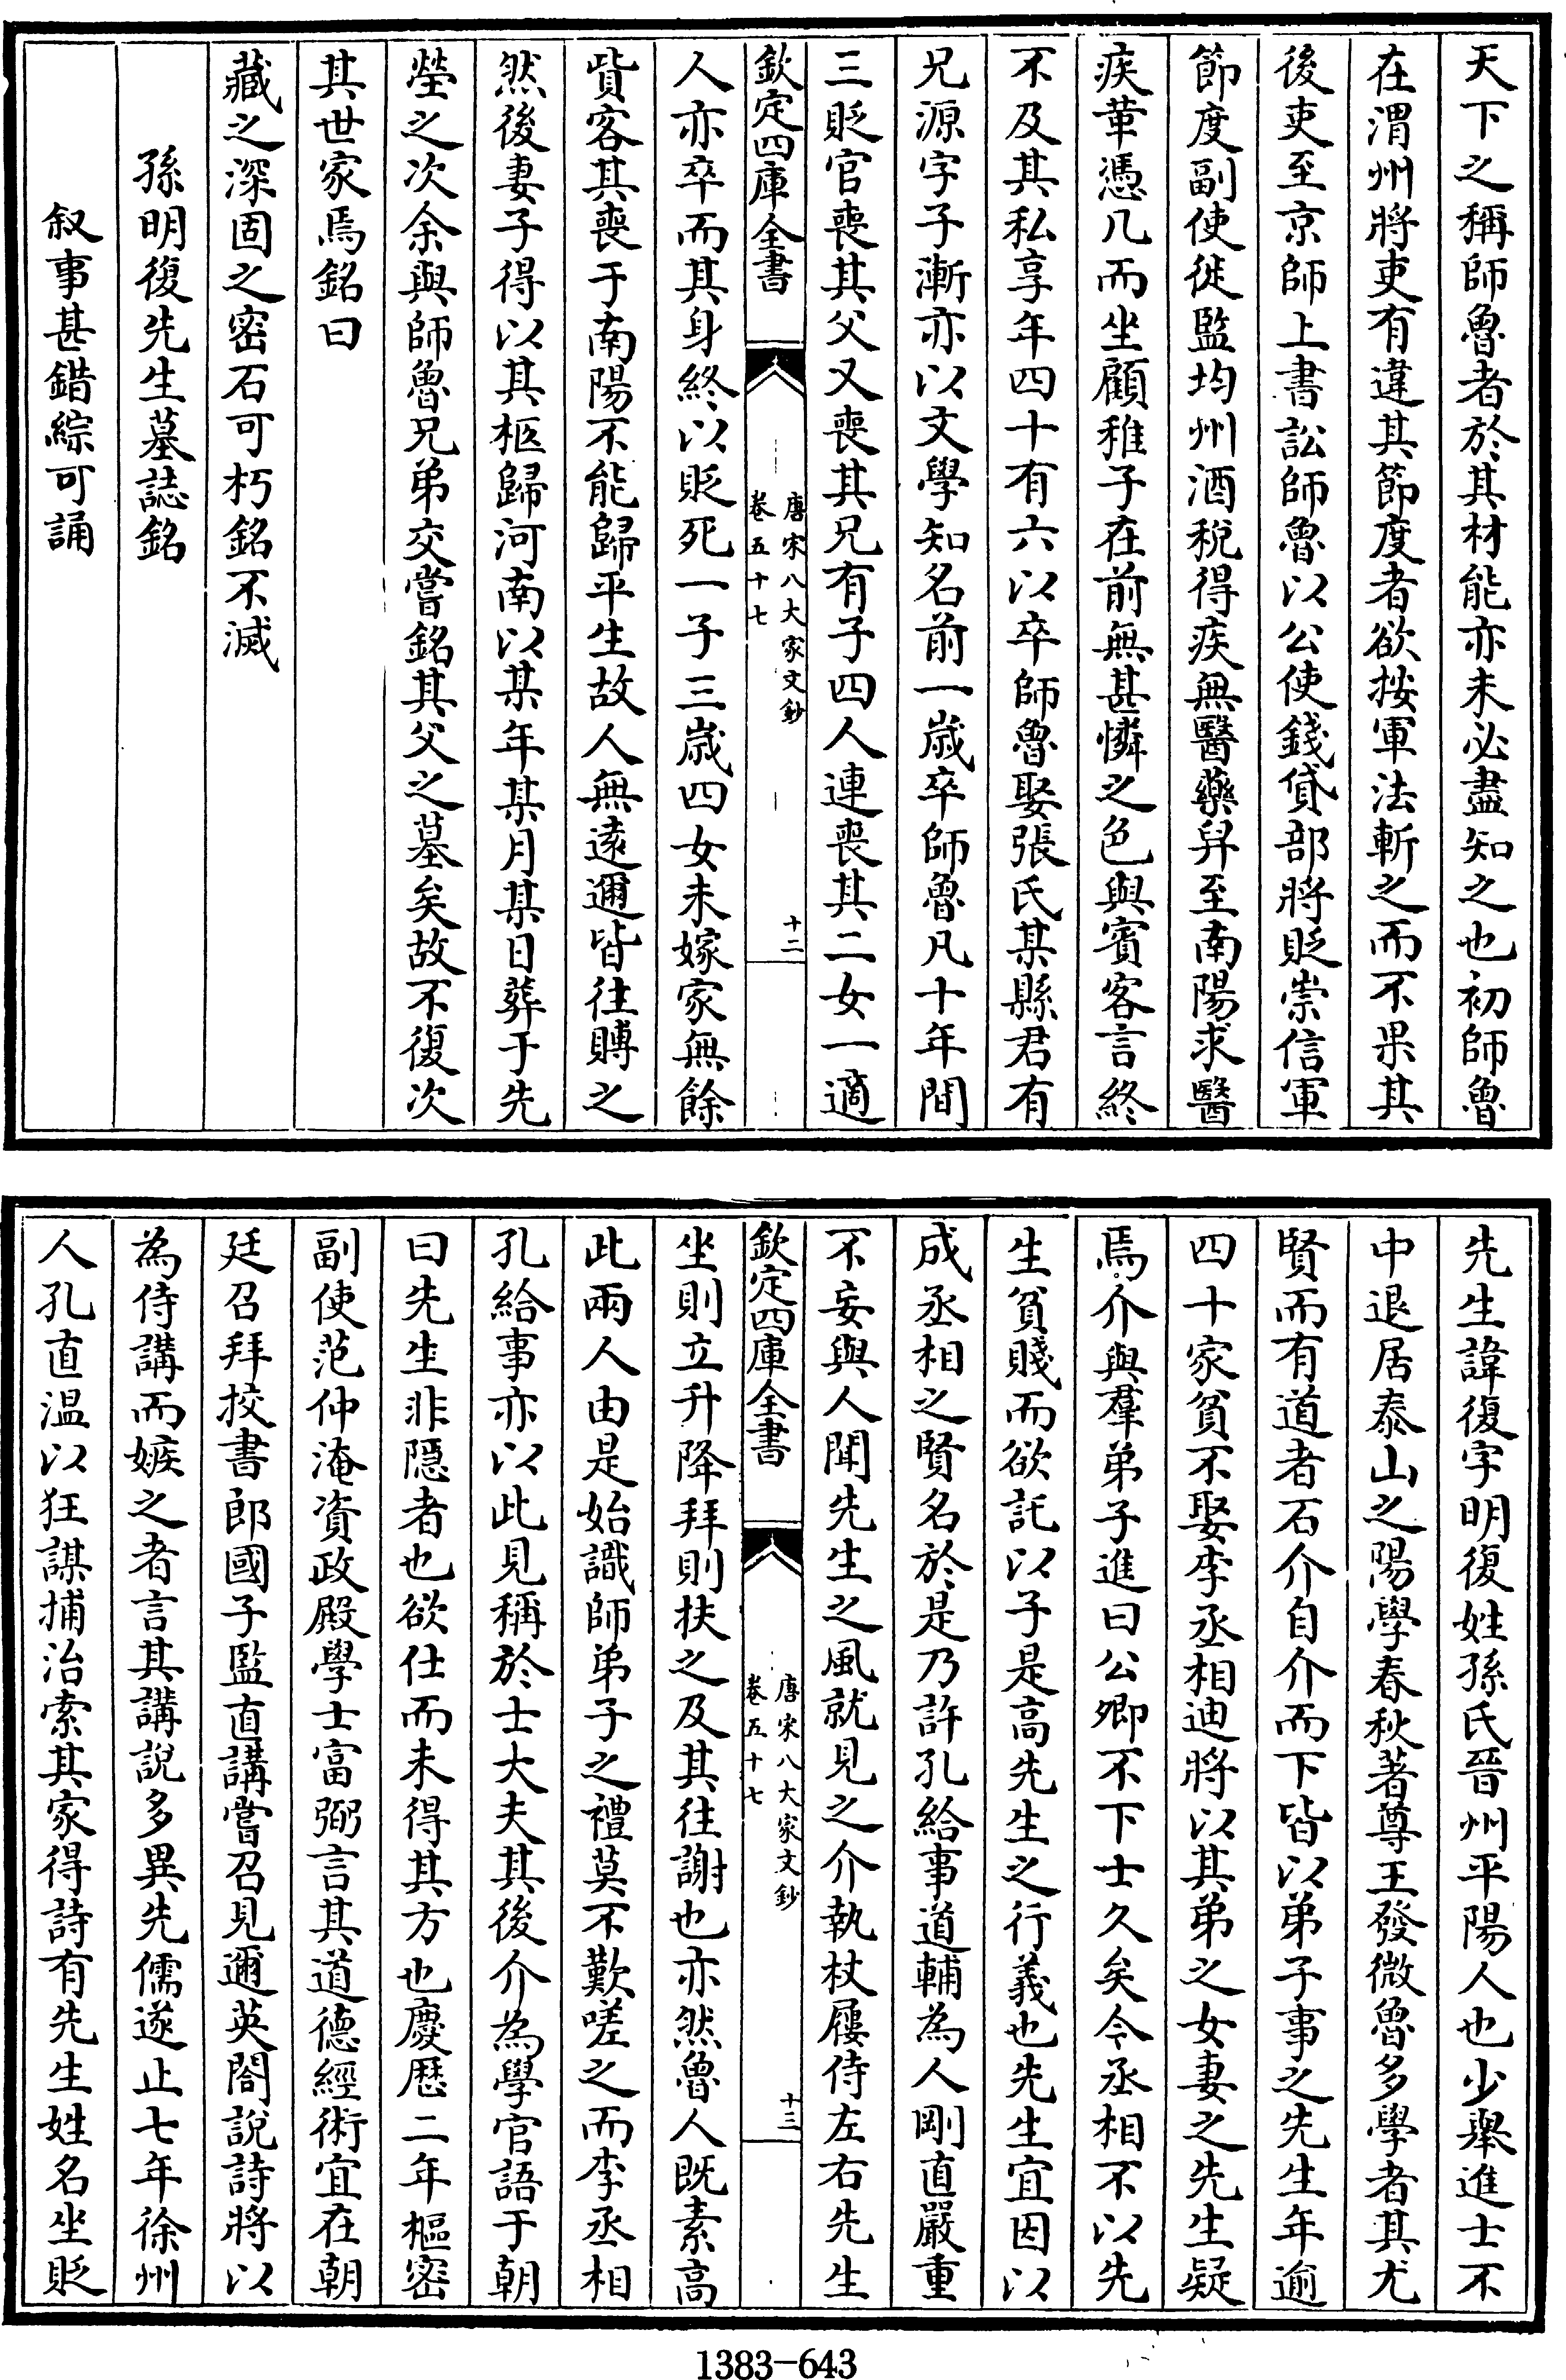 天下之稱師魯者於其材能亦未必盡知之也初師魯
在渭州將吏有違其節度者欲按軍法斬之而不果其
後吏至京師上書訟師魯以公使錢貸部將貶崇信軍
節度副使徙監均州酒稅得疾無醫藥舁至南陽求醫
疾革憑几而坐顧稚子在前無甚憐之色與賓客言終
不及其私享年四十有六以卒師魯娶張氏某縣君有
兄源字子漸亦以文學知名前一歳卒師魯凡十年間
三貶官喪其父又喪其兄有子四人連喪其二女一適
欽定四庫全書
唐宋八大家文鈔
卷五十七
十二
人亦卒而其身終以貶死一子三歳四女未嫁家無餘
貲客其喪于南陽不能歸平生故人無遠邇皆往賻之
然後妻子得以其柩歸河南以某年某月某日葬于先
塋之次余與師魯兄弟交嘗銘其父之墓矣故不復次
其世家焉銘曰
藏之深固之密石可朽銘不滅
孫明復先生墓誌銘
叙事甚錯綜可誦
先生諱復字明復姓孫氏晉州平陽人也少舉進士不
中退居泰山之陽學春秋著尊王發微魯多學者其尤
賢而有道者石介自介而下皆以弟子事之先生年逾
四十家貧不娶李丞相迪將以其弟之女妻之先生疑
焉介與羣弟子進曰公卿不下士久矣今丞相不以先
生貧賤而欲託以子是高先生之行義也先生宜因以
成丞相之賢名於是乃許孔給事道輔為人剛直嚴重
不妄與人聞先生之風就見之介執杖屨侍左右先生
欽定四庫全書
唐宋八大家文鈔
卷五十七
十三
坐則立升降拜則扶之及其往謝也亦然魯人既素高
此兩人由是始識師弟子之禮莫不歎嗟之而李丞相
孔給事亦以此見稱於士大夫其後介為學官語于朝
曰先生非隠者也欲仕而未得其方也慶歴二年樞密
副使范仲淹資政殿學士富弼言其道德經術宜在朝
廷召拜校書郎國子監直講嘗召見邇英閤說詩將以
為侍講而嫉之者言其講說多異先儒遂止七年徐州
人孔直溫以狂謀捕治索其家得詩有先生姓名坐貶
1383-643